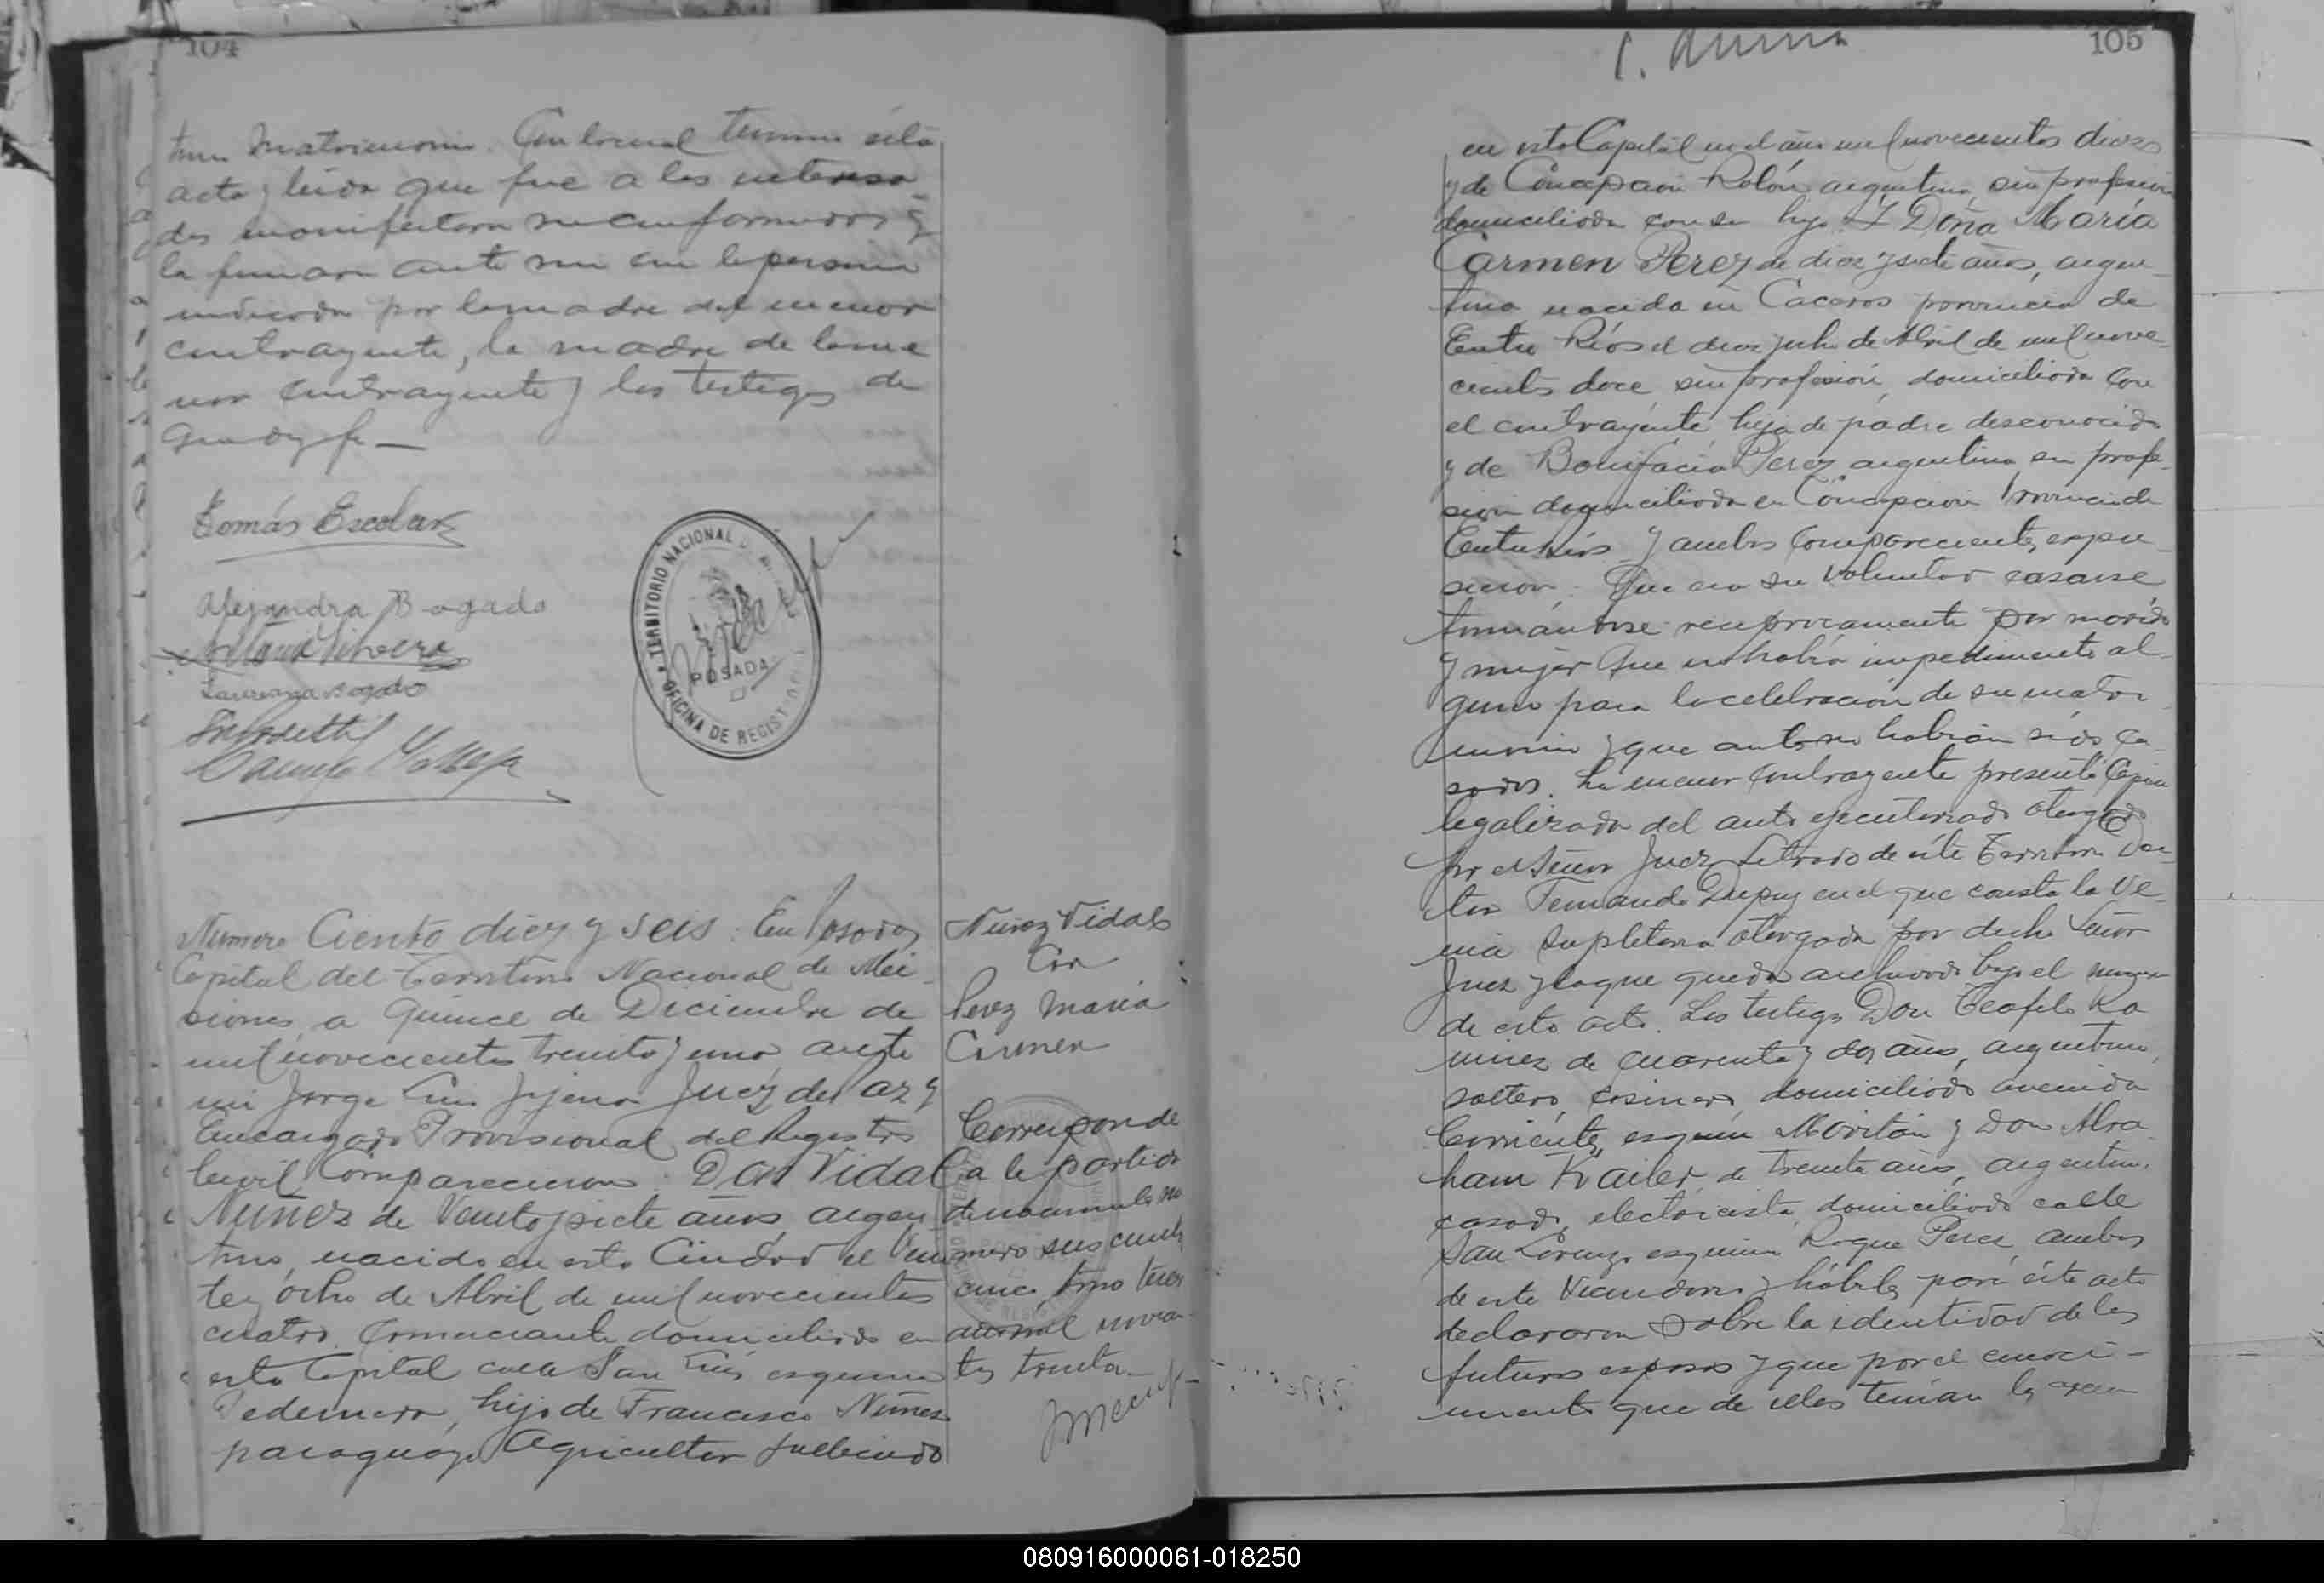 104
Matrimonio. Con lo cual termino esta
acta y leida que fue a los interesa
dos manifestaron su conformidad y
la firmaron ante mi con la persona
indicada por la madre del menor
contrayente, la madre de la me
nor contrayente y los testigos de
que doy fe—
Tomás Escobar
Alejandra Bogado
Laureana Bogado
TERRITORIO NACIONAL
POSADAS
OFICINA DE REGIST
Numero Ciento diez y seis: En Posadas
Capital del Territorio Nacional de Mi
siones, a quince de Diciembre de
mil novecientos treinta y uno ante
mi Jorge Luis Jejena Juez de Paz y
Encargado Provisional del Registro
Civil Comparecieron: Don Vidal
Nuñez de Veintisiete años, argen
tino, nacido en esta Ciudad el vein
te y ocho de Abril de mil novecientos
cuatro. Comerciante domiciliado en
esta Capital calle San Luis esquina
Pedernera, hijo de Francisco Nuñez
paraguayo Agricultor fallecido
Nuñez Vidal
Con
Perez Maria
Carmen
Corresponde
a la partida
de nacimiento nu
mero seis cientos
cinco tomo
mil novecien
tos treinta—
105
en esta Capital en el año mil novecientos diez
y de Concepcion Rolón argentina, sin profesion
domiciliada con su hijo. Y Doña María
Carmen Perez de diez y siete años, argen
tina nacida en Caceros provincia de
Entre Ríos el diez y ocho de Abril de mil nove
cientos doce, sin profesion, domiciliada con
el contrayente, hija de padre desconocido
y de Bonifacia Perez argentina sin profe
sion domiciliada en Concepcion Provincia de
Entre Rios y ambos comparecientes expu
sieron: Que era su voluntad casarse
tomándose reciprocamente por marido
y mujer Que no habia impedimento al
guno para la celebracion de su matri
monio y que antes no habian sido ca
sados. La menor contrayente presentó Copia
legalizada del auto ejecutoriado otorgado
por el Señor Juez Letrado de este Territorio Doc
tor Fernando Dupuy en el que consta la ve
nia supletoria otorgada por dicho Señor
Juez y la que queda archivada bajo el numero
de esta acta. Los testigos Don Teofilo Ra
mirez de cuarenta y dos años, argentino,
soltero, cosinero, domiciliado avenida
Corrientes esquina Moritan y Don Abra
ham Krailer, de treinta años, argentino,
casado, electricista, domiciliado calle
San Lorenzo esquina Roque Perez, ambos
de este Vecindario y hábiles para este acto
declararon sobre la identidad de los
futuros esposos y que por el conoci-
miento que de ellos tenian los creen
080916000061-018250